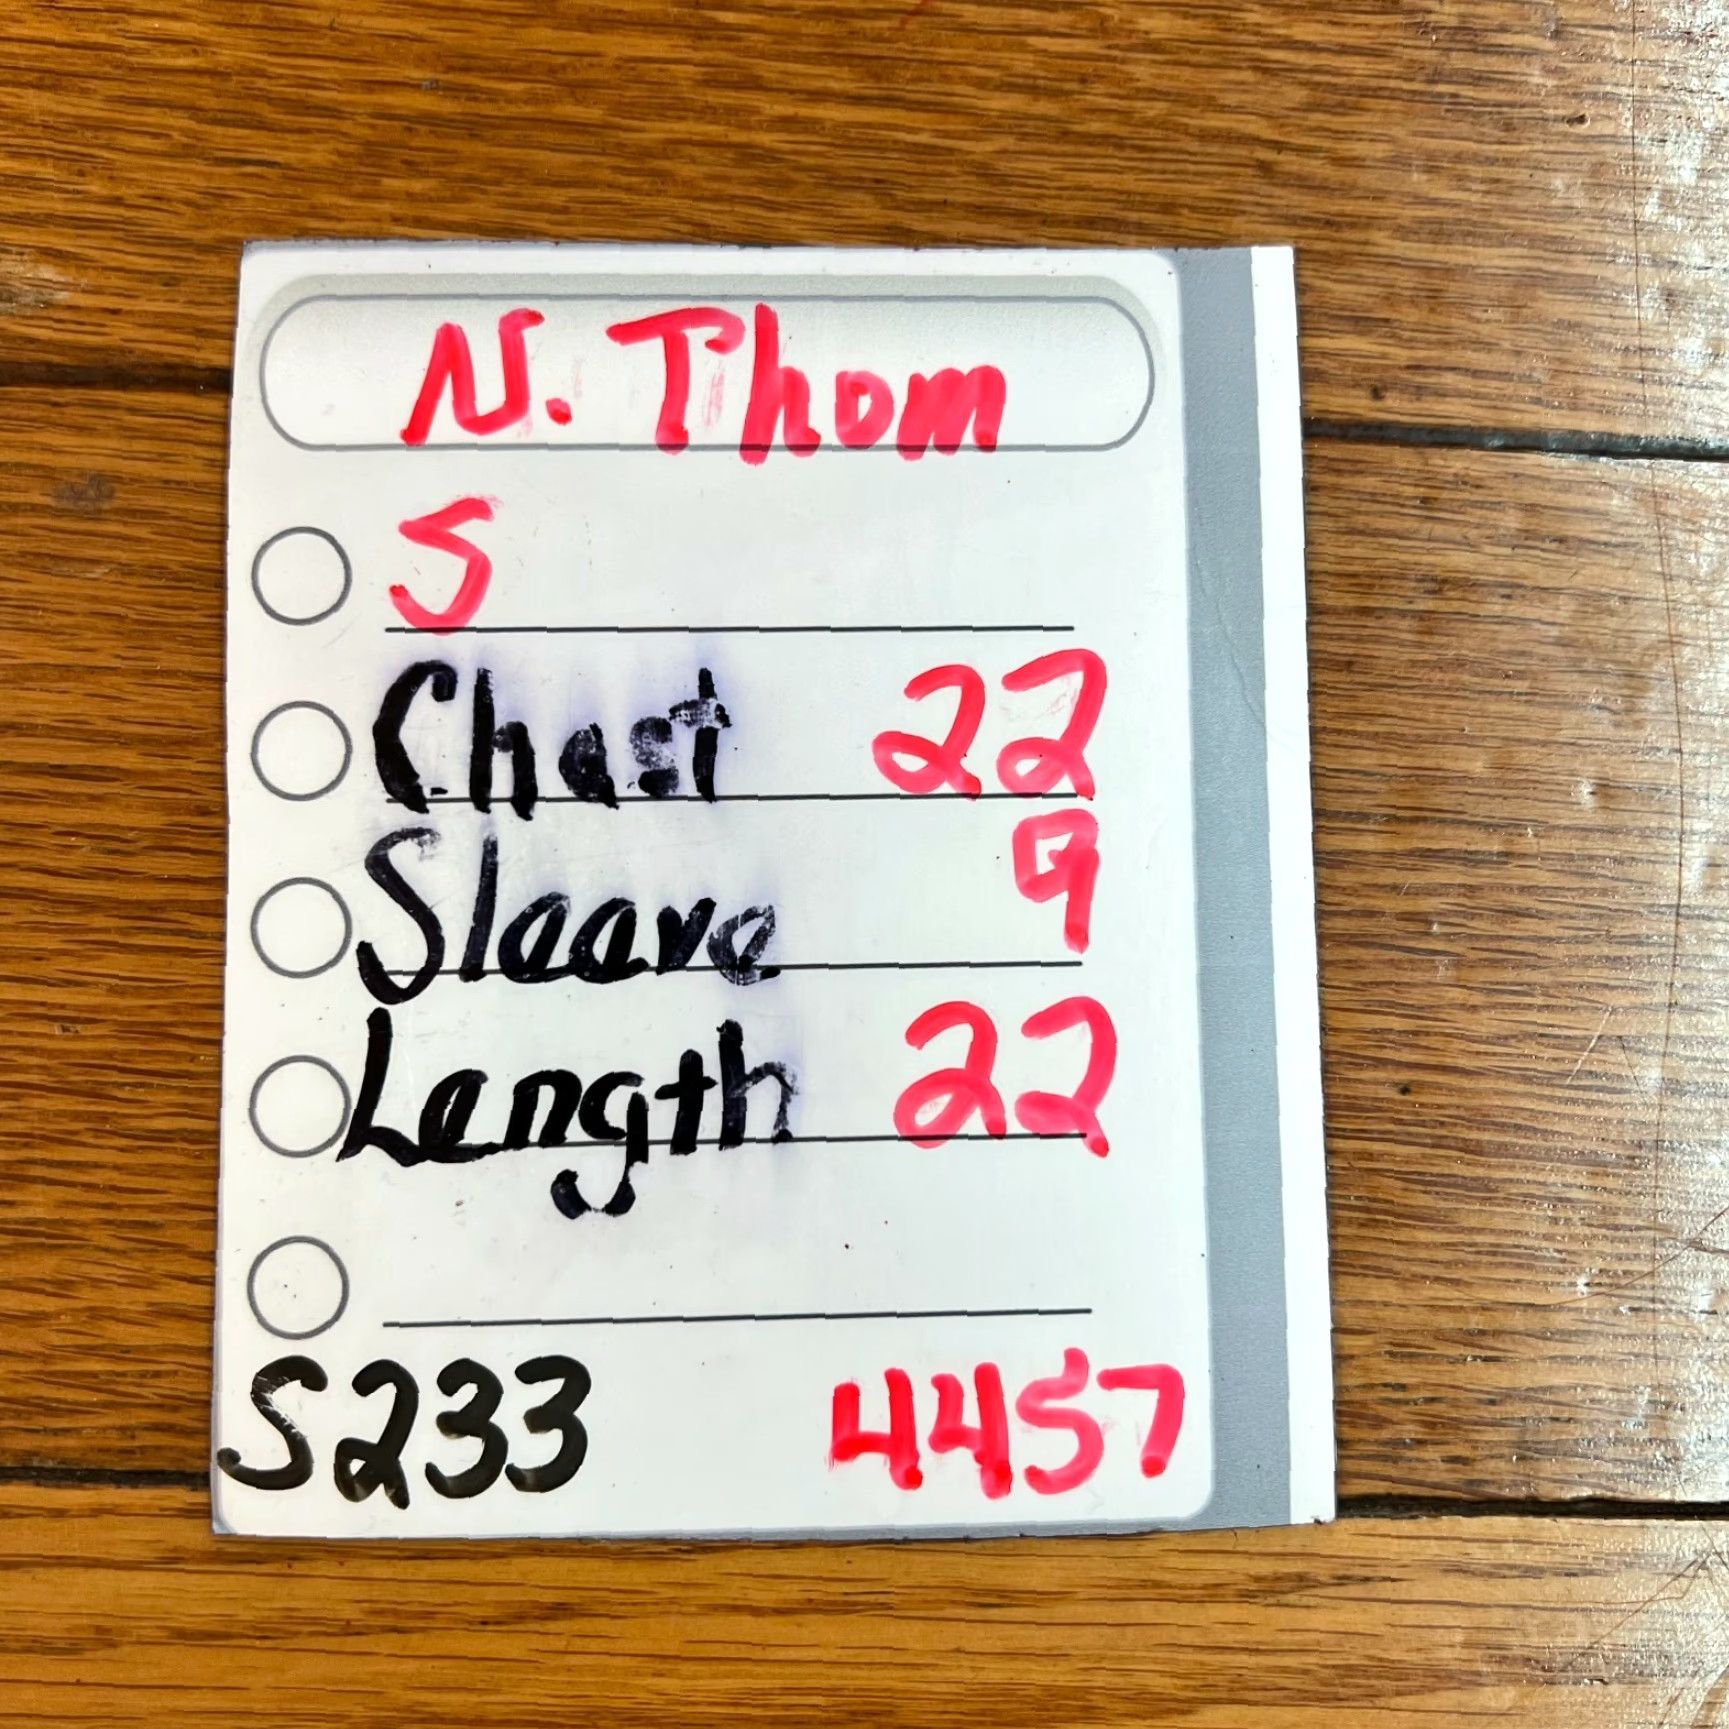 N. Thom
S
Chest 22
Sleeve 9
Length 22
S233 4457